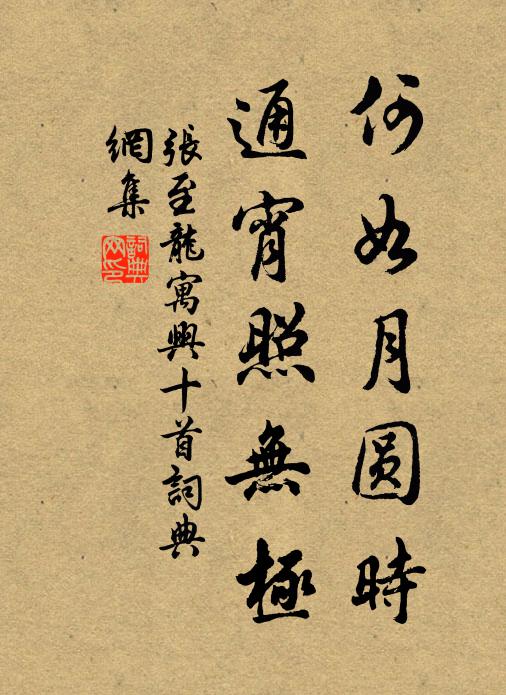 何如月圆時
通宵照無極
張至龍寓興十首詞典
網集
詞典网印